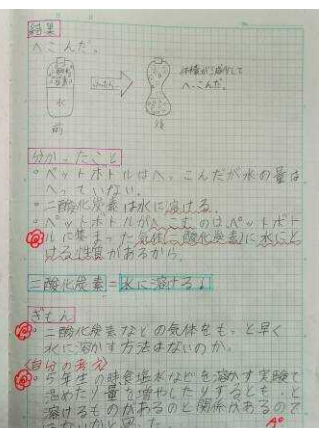 結果
へこんだ。
二酸化炭素
水
前
ふった
体積が減少して
へっこんだ。
後
分かったこと
・ペットボトルはへっこんだが水の量は
へっていない。
・二酸化炭素は水に溶ける。
・ペットボトルがへっこむのはペットボト
ルに集まった気体(二酸化炭素)に水にと
ける性質があるから。
二酸化炭素=水に溶ける!
ぎもん
・二酸化炭素などの気体をもっと早く
水に溶かす方法はないのか。
(自分の考え)
・5年生の時食塩水などを溶かす実験で
温めたり量を増やしたりするともっと
溶けるものがあるのと関係があるので
はないかと思った。
A°